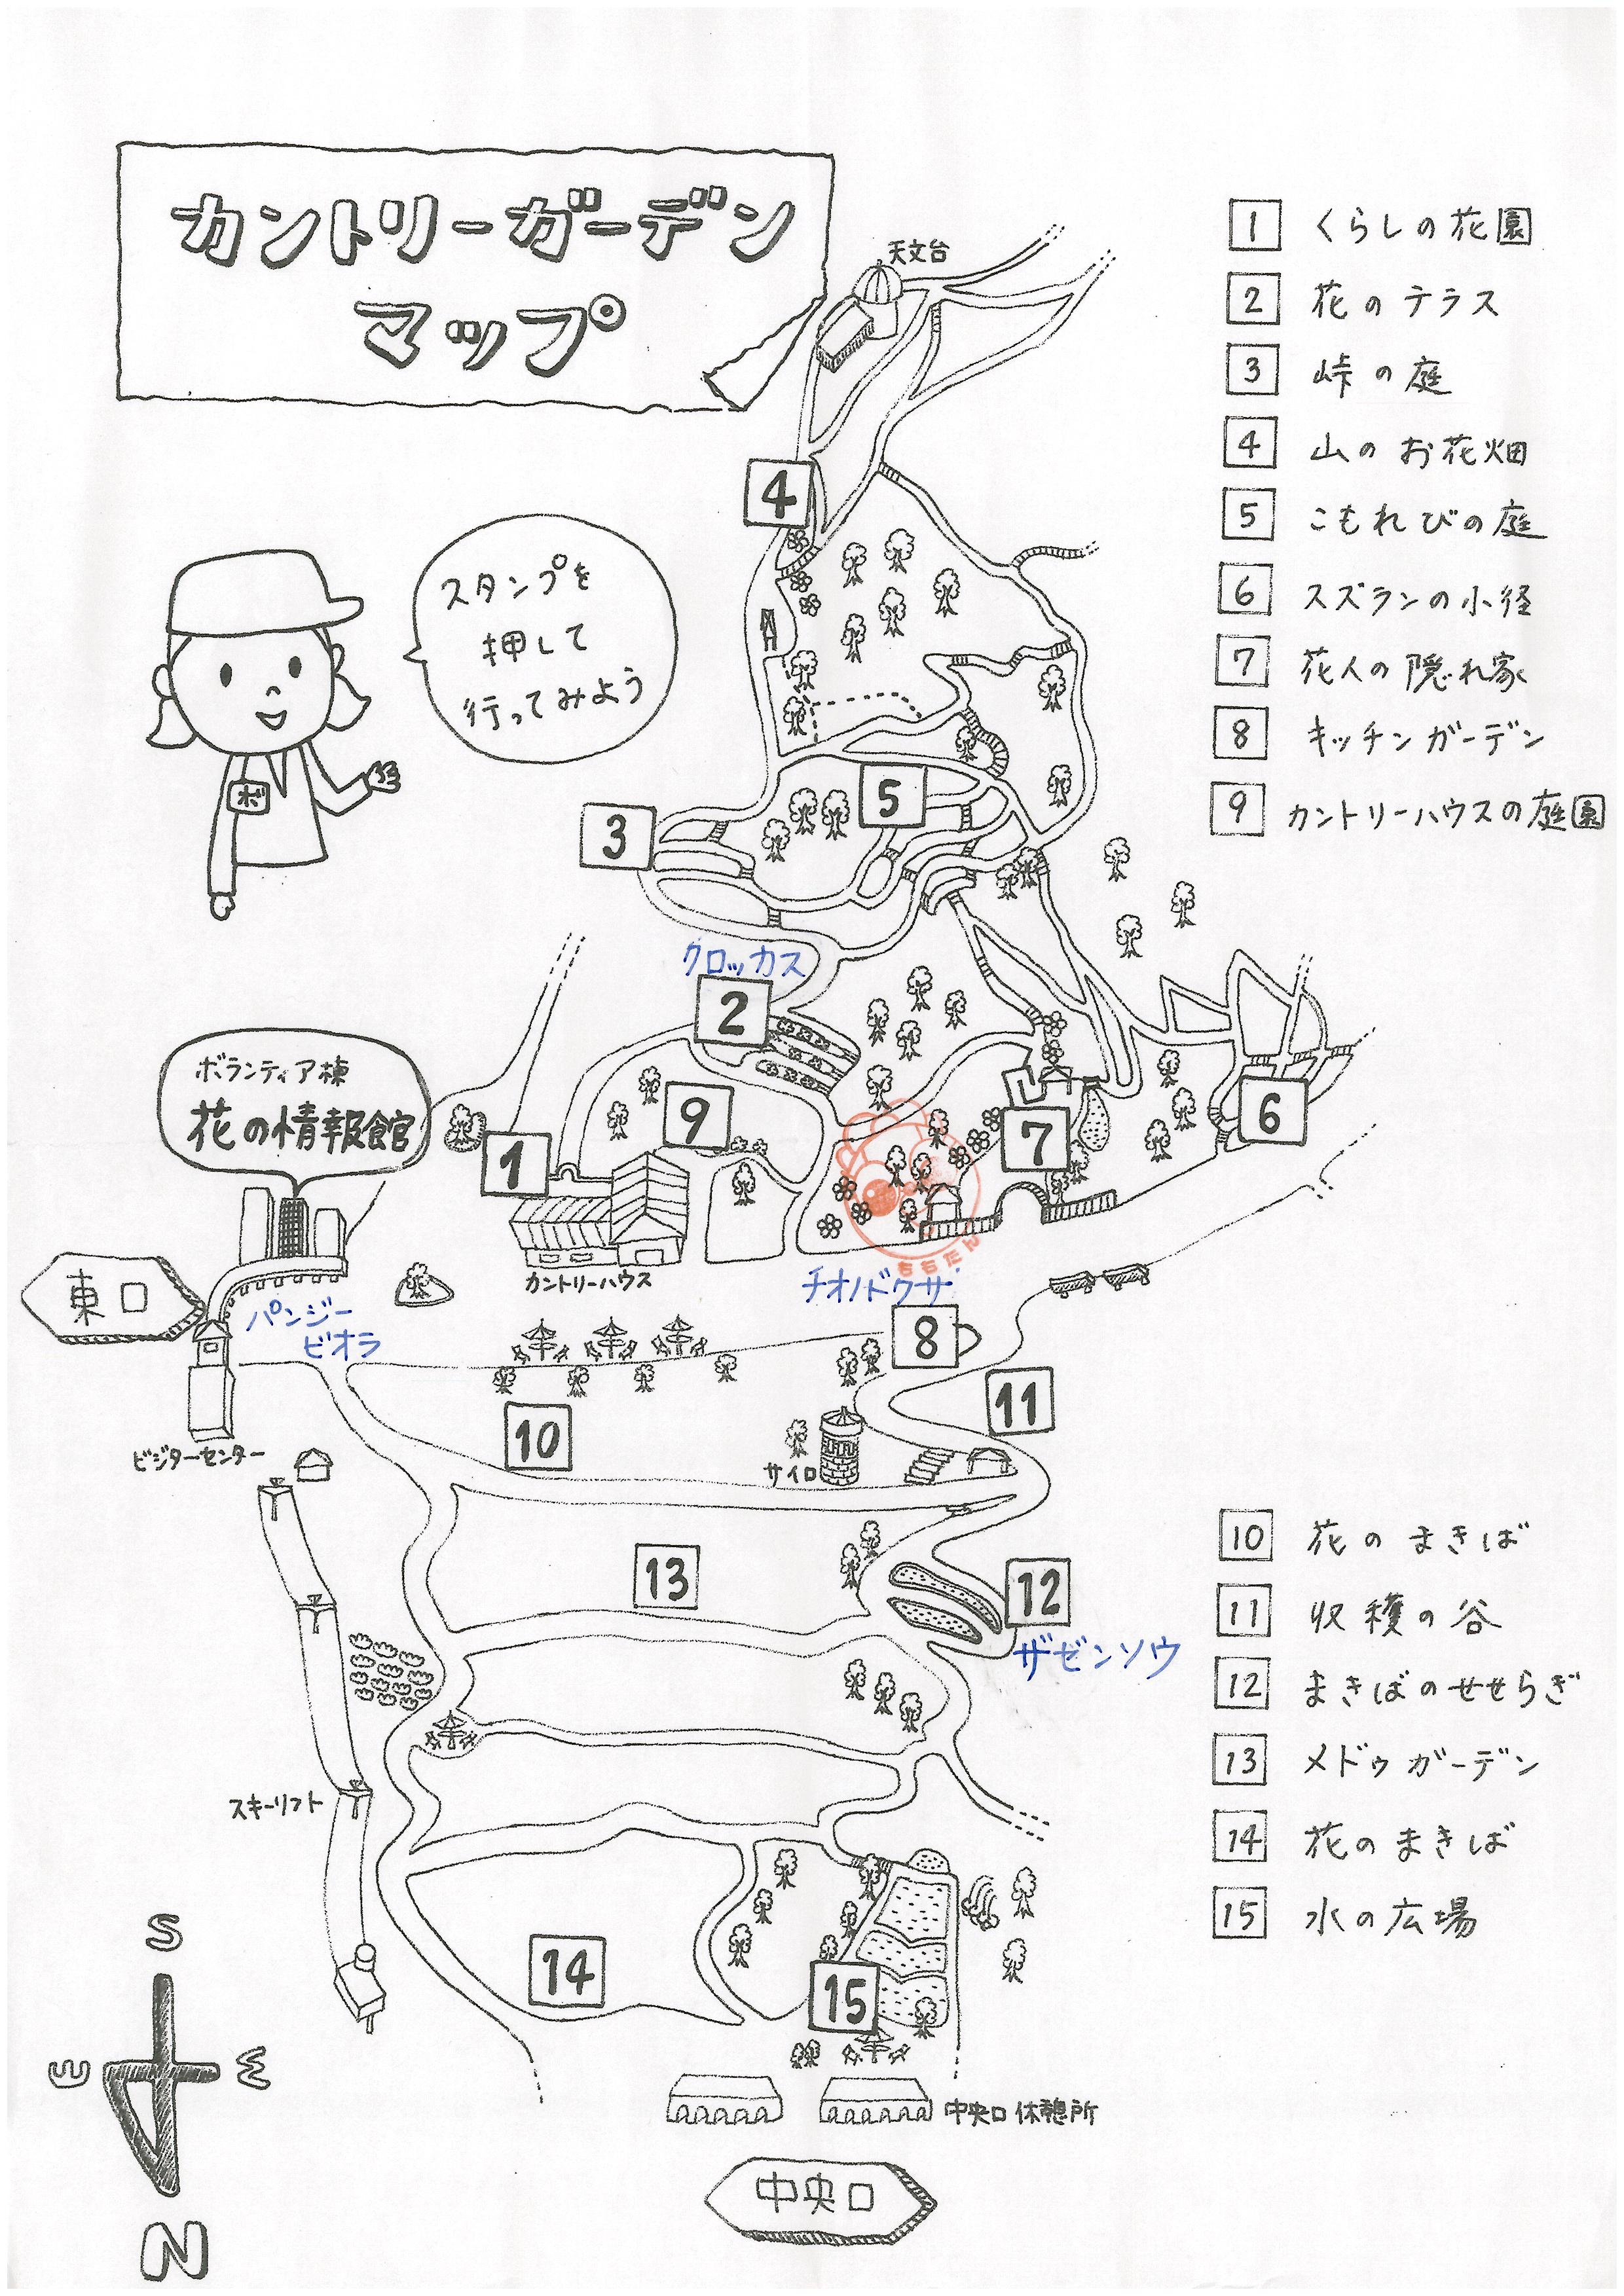 カントリーガーデン
マップ
スタンプを
押して
行ってみよう
ボ
天文台
1 くらしの花園
2 花のテラス
3 峠の庭
4 山のお花畑
5 こもれびの庭
6 スズランの小径
7 花人の隠れ家
8 キッチンガーデン
9 カントリーハウスの庭園
4
5
3
クロッカス
2
ボランティア棟
花の情報館
9
7
6
1
ももたん
カントリーハウス
チオノドクサ
東口
パンジー
ビオラ
8
ビジターセンター
10
11
サイロ
13
12
ザゼンソウ
10 花のまきば
11 収穫の谷
12 まきばのせせらぎ
13 メドゥガーデン
14 花のまきば
15 水の広場
スキーリフト
14
15
S
E
W
N
中央口休憩所
中央口